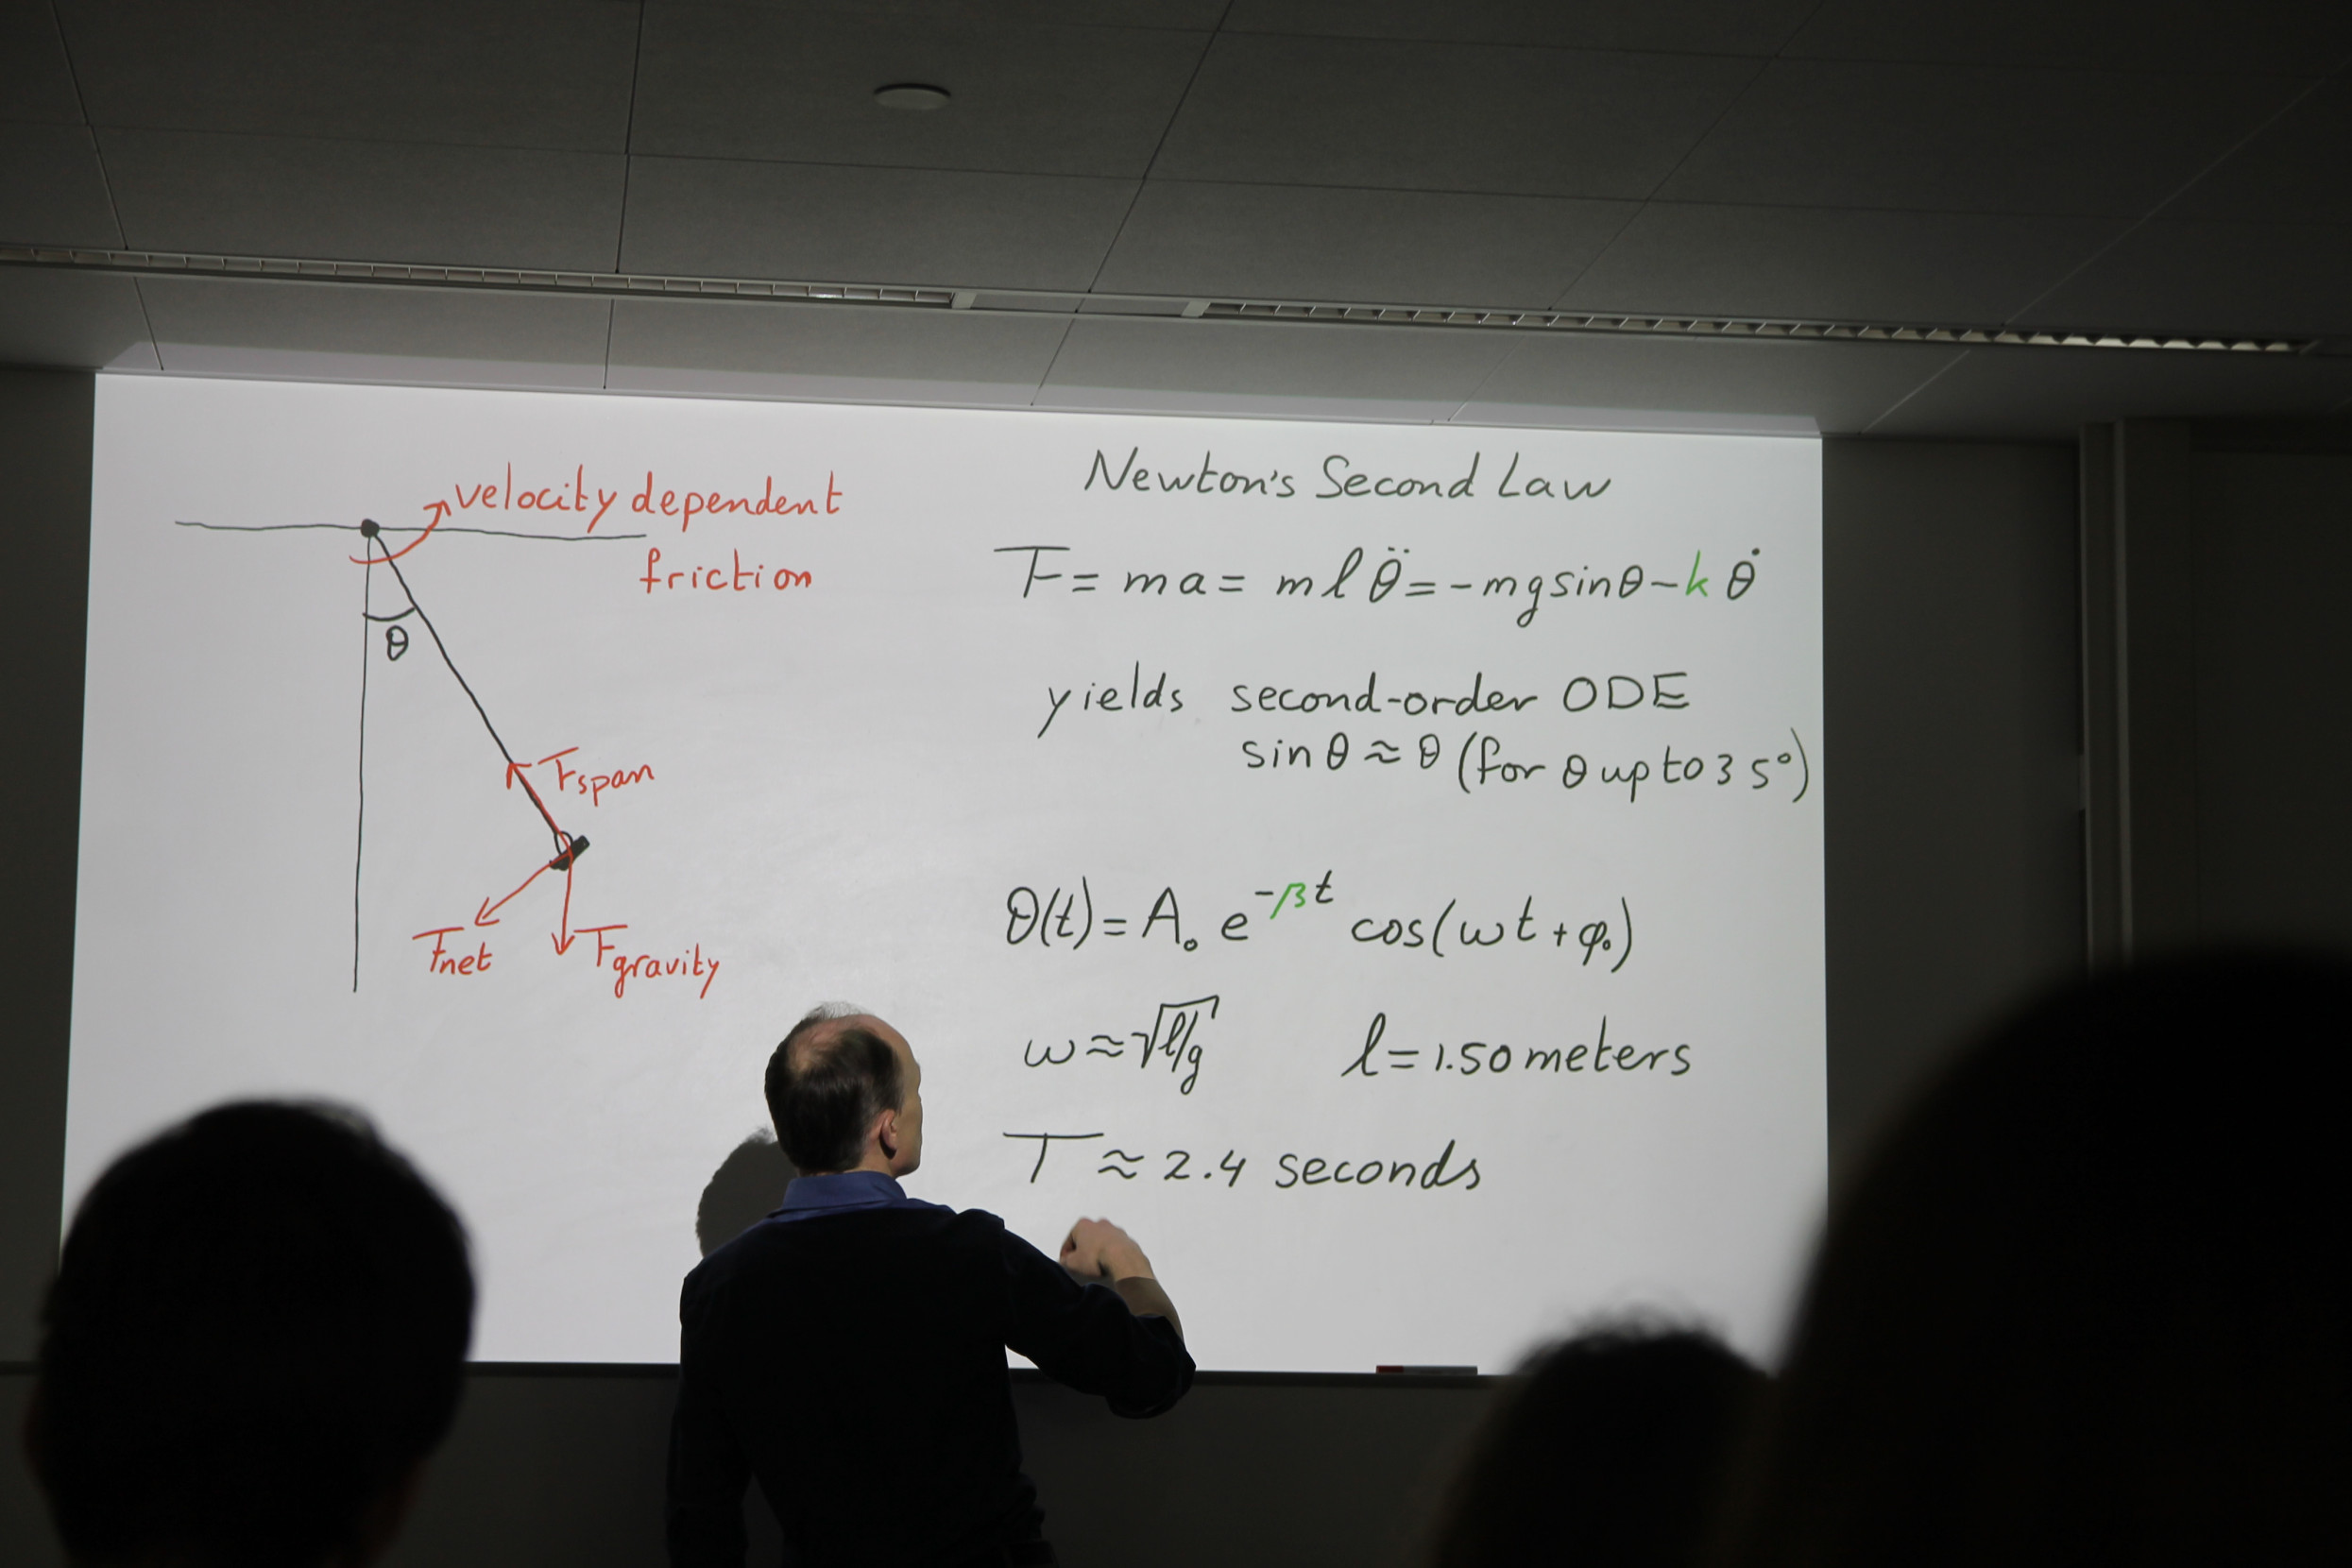 velocity dependent
friction
θ
Fspan
Fnet
Fgravity
Newton's Second Law
F = ma = mlθ̈ = -mg sinθ - kθ̇
yields second-order ODE
sin θ ≈ θ (for θ up to 35°)
θ(t) = A₀ e^(-βt) cos(ωt + φ₀)
ω ≈ √(l/g) l = 1.50 meters
T ≈ 2.4 seconds